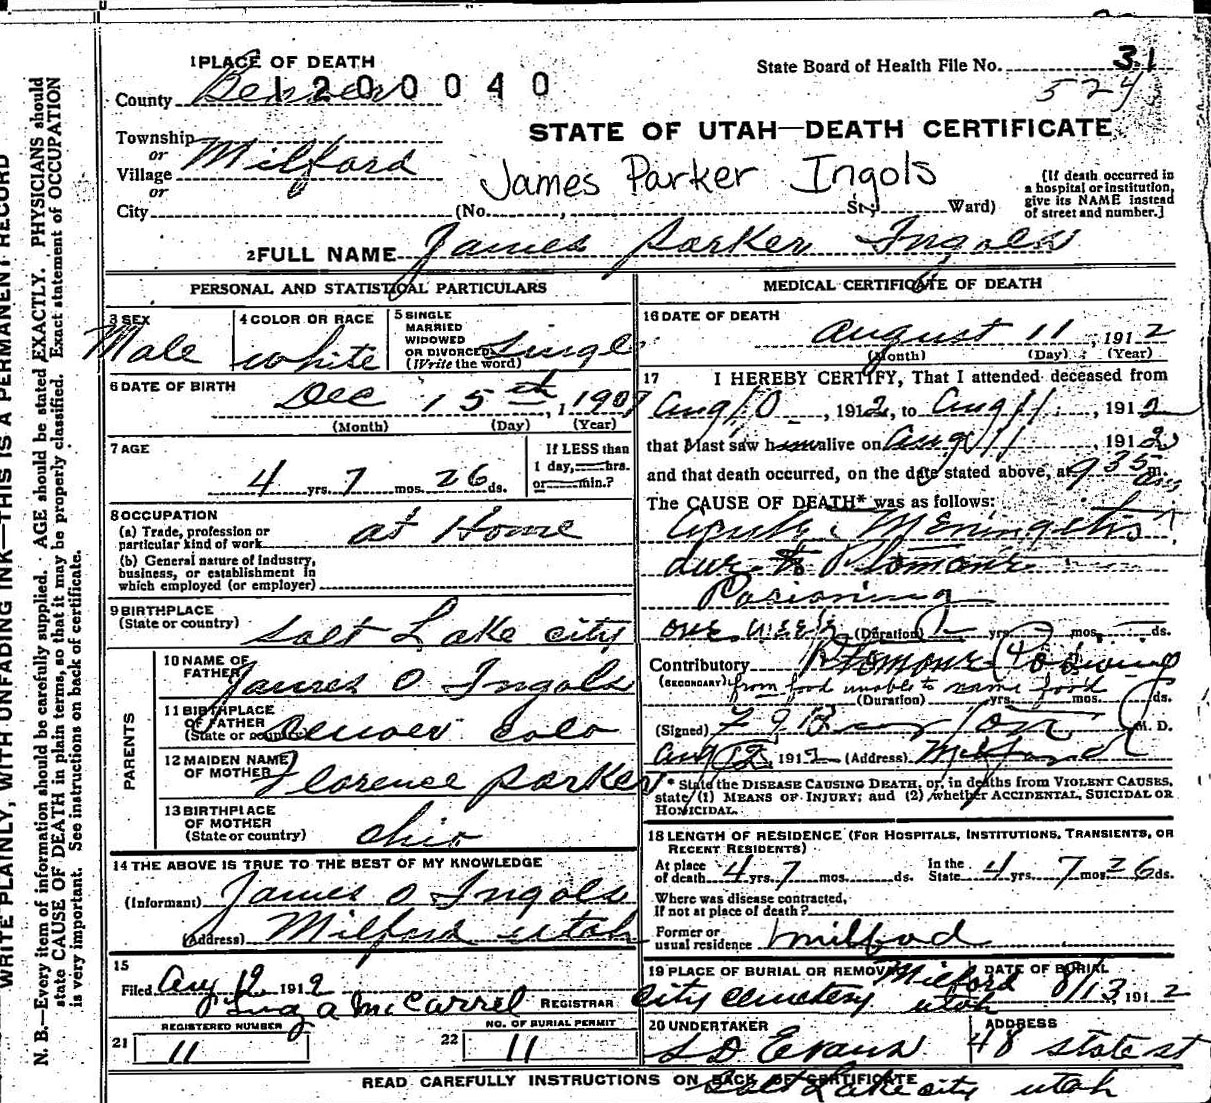 1 PLACE OF DEATH
State Board of Health File No. 31
County Beaver 1200040
524
STATE OF UTAH—DEATH CERTIFICATE
Township
or
Village Milford
or
James Parker Ingols
City (No. , St., Ward)
(If death occurred in
a hospital or institution,
give its NAME instead
of street and number.]
2 FULL NAME James Parker Ingols
PERSONAL AND STATISTICAL PARTICULARS
3 SEX
Male
4 COLOR OR RACE
white
5 SINGLE
MARRIED
WIDOWED
OR DIVORCED
(Write the word)
Single
6 DATE OF BIRTH
Dec 15th, 1907
(Month) (Day) (Year)
7 AGE
4 yrs. 7 mos. 26 ds.
If LESS than
1 day, hrs.
or min.?
8 OCCUPATION
(a) Trade, profession or
particular kind of work at Home
(b) General nature of industry,
business, or establishment in
which employed (or employer)
9 BIRTHPLACE
(State or country) Salt Lake city
PARENTS
10 NAME OF
FATHER James O. Ingols
11 BIRTHPLACE
OF FATHER
(State or country) Denver Colo
12 MAIDEN NAME
OF MOTHER Florence Parker
13 BIRTHPLACE
OF MOTHER
(State or country) Ohio
14 THE ABOVE IS TRUE TO THE BEST OF MY KNOWLEDGE
(Informant) James O Ingols
(Address) Milford utah
15
Filed Aug 12 1912
McCarrel REGISTRAR
REGISTERED NUMBER
21 11
NO. OF BURIAL PERMIT
22 11
MEDICAL CERTIFICATE OF DEATH
16 DATE OF DEATH
August 11, 1912
(Month) (Day) (Year)
17 I HEREBY CERTIFY, That I attended deceased from
Aug 10, 1912, to Aug 11, 1912
that I last saw him alive on Aug 11, 1912
and that death occurred, on the date stated above, at 9 35 m.
am
The CAUSE OF DEATH* was as follows:
Acute Meningetis
due to Ptomaine
Poisioning
one week (Duration) yrs. mos. ds.
Contributory Ptomone Poisoning
(SECONDARY) from food unable to name food
(Duration) yrs. mos. ds.
(Signed) M. D.
Aug 12, 1912 (Address) Milford
* State the DISEASE CAUSING DEATH, or, in deaths from VIOLENT CAUSES,
state (1) MEANS OF INJURY; and (2) whether ACCIDENTAL, SUICIDAL OR
HOMICIDAL.
18 LENGTH OF RESIDENCE (FOR HOSPITALS, INSTITUTIONS, TRANSIENTS, OR
RECENT RESIDENTS)
At place
of death 4 yrs. 7 mos. ds.
In the
State 4 yrs. 7 mos. 26 ds.
Where was disease contracted,
If not at place of death?
Former or
usual residence milfod
19 PLACE OF BURIAL OR REMOVAL
Milford
City Cemetery utah
DATE OF BURIAL
8/13 1912
20 UNDERTAKER
S D Evans
ADDRESS
48 state st
Salt Lake city utah
READ CAREFULLY INSTRUCTIONS ON BACK OF CERTIFICATE
N. B.—Every item of information should be carefully supplied. AGE should be stated EXACTLY. PHYSICIANS should
state CAUSE OF DEATH in plain terms, so that it may be properly classified. Exact statement of OCCUPATION
is very important. See instructions on back of certificate.
WRITE PLAINLY, WITH UNFADING INK—THIS IS A PERMANENT RECORD